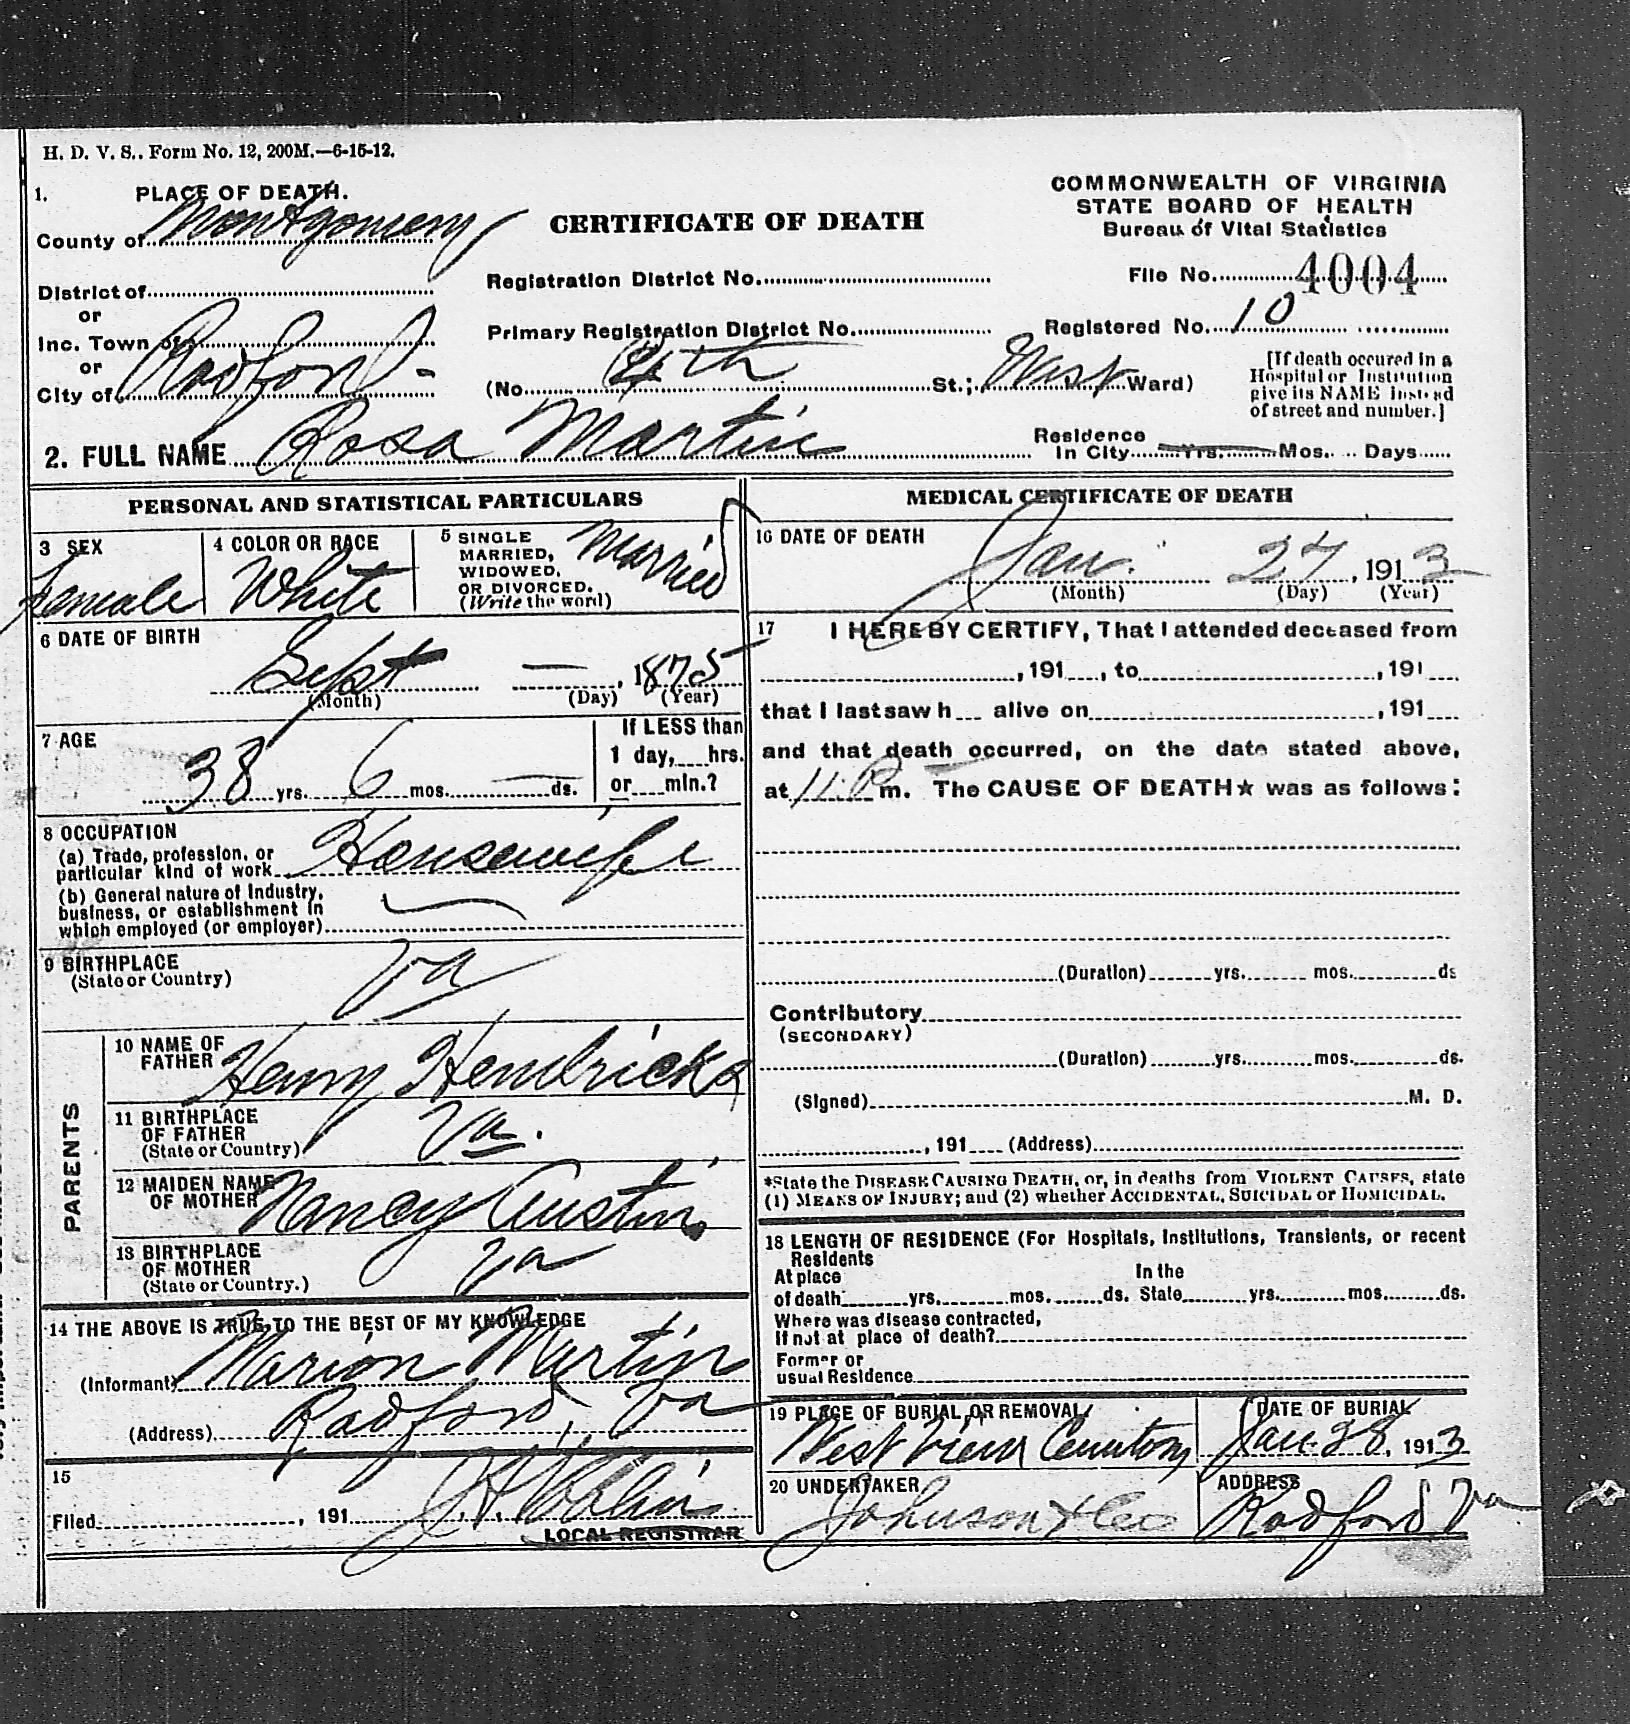 H. D. V. S.. Form No. 12, 200M.—6-15-12.
1. PLACE OF DEATH.
County of Montgomery
District of
or
Inc. Town of
or
City of Radford -
CERTIFICATE OF DEATH
Registration District No.
Primary Registration District No.
(No. 4th St.; West Ward)
COMMONWEALTH OF VIRGINIA
STATE BOARD OF HEALTH
Bureau of Vital Statistics
File No. 4004
Registered No. 10
[If death occured in a
Hospital or Institution
give its NAME instead
of street and number.]
2. FULL NAME Rosa Martin
Residence
In City Yrs. Mos. Days
PERSONAL AND STATISTICAL PARTICULARS
3 SEX
Female
4 COLOR OR RACE
White
5 SINGLE
MARRIED,
WIDOWED,
OR DIVORCED.
(Write the word)
Married
6 DATE OF BIRTH
Sept — , 1875
(Month) (Day) (Year)
7 AGE
38 yrs. 6 mos. — ds.
If LESS than
1 day, hrs.
or min.?
8 OCCUPATION
(a) Trade, profession, or
particular kind of work Housewife
(b) General nature of Industry,
business, or establishment in
which employed (or employer)
9 BIRTHPLACE
(State or Country)
Va
PARENTS
10 NAME OF
FATHER Henry Hendricks
11 BIRTHPLACE
OF FATHER
(State or Country) Va.
12 MAIDEN NAME
OF MOTHER Nancy Austin
13 BIRTHPLACE
OF MOTHER
(State or Country.) Va
14 THE ABOVE IS TRUE TO THE BEST OF MY KNOWLEDGE
(Informant) Marion Martin
(Address) Radford, Va
15
Filed , 191
LOCAL REGISTRAR
MEDICAL CERTIFICATE OF DEATH
16 DATE OF DEATH
Jan. 27, 1913
(Month) (Day) (Year)
17 I HEREBY CERTIFY, That I attended deceased from
, 191 , to , 191
that I last saw h alive on , 191
and that death occurred, on the date stated above,
at 11 P m. The CAUSE OF DEATH★ was as follows:
(Duration) yrs. mos. ds
Contributory
(SECONDARY)
(Duration) yrs. mos. ds.
(Signed) M. D.
, 191 (Address)
*State the DISEASE CAUSING DEATH, or, in deaths from VIOLENT CAUSES, state
(1) MEANS OF INJURY; and (2) whether ACCIDENTAL, SUICIDAL or HOMICIDAL.
18 LENGTH OF RESIDENCE (For Hospitals, Institutions, Transients, or recent
Residents
At place In the
of death yrs. mos. ds. State yrs. mos. ds.
Where was disease contracted,
If not at place of death?
Former or
usual Residence
19 PLACE OF BURIAL OR REMOVAL
West View Cemetery
DATE OF BURIAL
Jan. 28, 1913
20 UNDERTAKER
Johnson & Co
ADDRESS
Radford Va